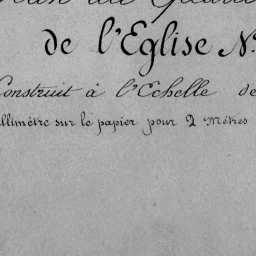 de l'Eglise N
Construit à l'Echelle de
illimètre sur le papier pour 2 Mètres